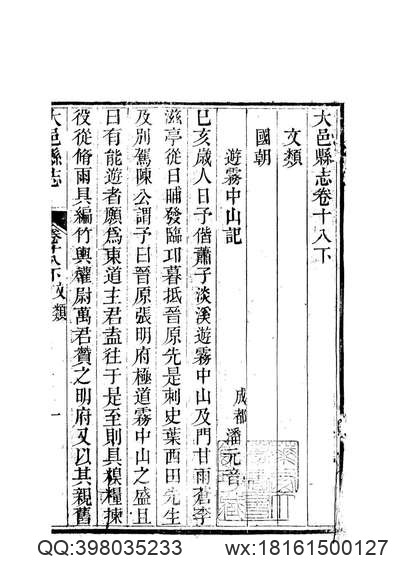 大邑縣志卷十八下
文類
國朝
遊霧中山記
成都潘元音
巳亥歲人日予偕蕭子淡溪遊霧中山及門甘雨蒼李
滋亭從日晡發臨卭暮抵晉原先是刺史葉西田先生
及別駕陳公謂予曰晉原張明府極道霧中山之盛且
曰有能遊者願爲東道主君盍往于是至則具糗糧揀
役從脩雨具編竹輿權尉萬君贊之明府又以其親舊
大邑縣志
卷十八下 文類
一
QQ:398035233
wx:18161500127